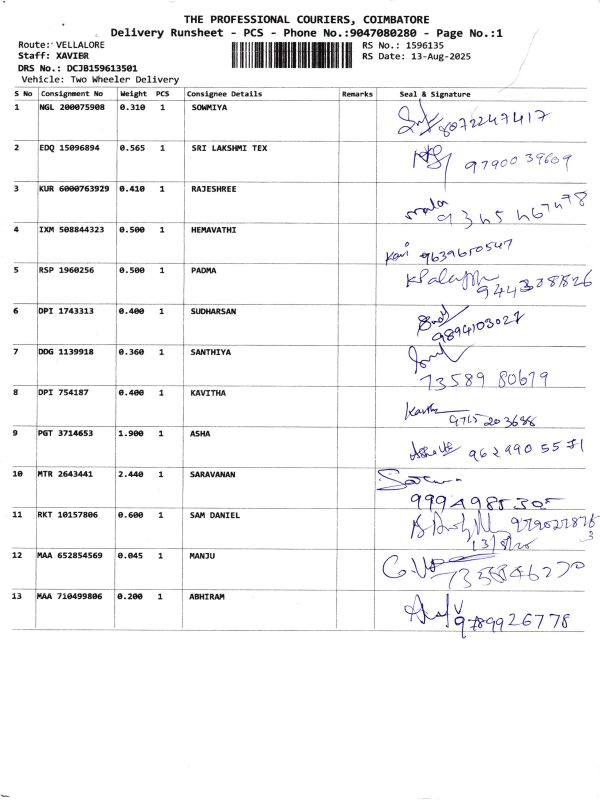 THE PROFESSIONAL COURIERS, COIMBATORE
Delivery Runsheet - PCS - Phone No.:9047080280 - Page No.:1
Route: VELLALORE
RS No.: 1596135
Staff: XAVIER
RS Date: 13-Aug-2025
DRS No.: DCJB159613501
Vehicle: Two Wheeler Delivery
S No Consignment No Weight PCS Consignee Details Remarks Seal & Signature
1 NGL 200075908 0.310 1 SOWMIYA 8072247417
2 EDQ 15096894 0.565 1 SRI LAKSHMI TEX 9790039609
3 KUR 6000763929 0.410 1 RAJESHREE mala 9345467478
4 IXM 508844323 0.500 1 HEMAVATHI Kavi 9639650547
5 RSP 1960256 0.500 1 PADMA
6 DPI 1743313 0.400 1 SUDHARSAN 9894103027
7 DDG 1139918 0.360 1 SANTHIYA 73589 80679
8 DPI 754187 0.400 1 KAVITHA 9715203688
9 PGT 3714653 1.900 1 ASHA 962990 5571
10 MTR 2643441 2.440 1 SARAVANAN
11 RKT 10157806 0.600 1 SAM DANIEL
12 MAA 652854569 0.045 1 MANJU
13 MAA 710499806 0.200 1 ABHIRAM 9789926778